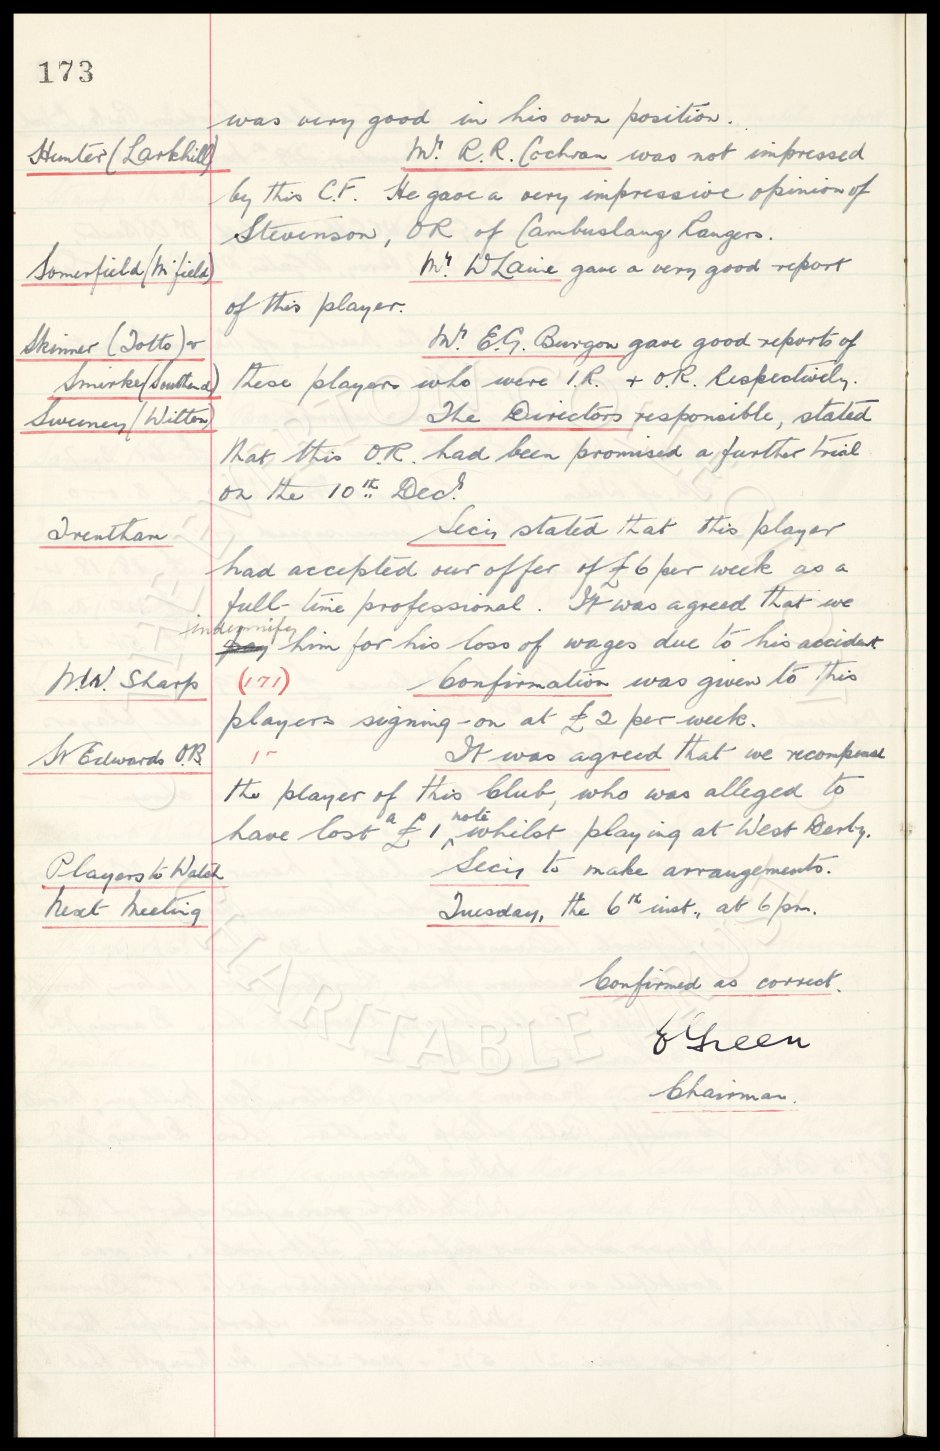 173
was very good in his own position.
Hunter (Larkhill) Mr. R.R. Cochran was not impressed
by this C.F. He gave a very impressive opinion of
Stevenson, OR of Cambuslang Rangers.
Somerfield (M'field) Mr. W Laine gave a very good report
of this player.
Skinner (Totts) or Mr. E.G. Burgon gave good reports of
Smirke (Southend) these players who were I.R. + O.R. Respectively.
Sweeney (Wilton) The Directors responsible, stated
that this O.R. had been promised a further trial
on the 10th Decr.
Trentham Secy stated that this player
had accepted our offer of £6 per week as a
full-time professional. It was agreed that we
indemnify
pay him for his loss of wages due to his accident
W.W. Sharp (171) Confirmation was given to this
players signing-on at £2 per week.
St Edwards O.B. It was agreed that we recompense
the player of this Club, who was alleged to
have lost a £1, note whilst playing at West Derby.
Players to Watch Secy to make arrangements.
Next Meeting Tuesday, the 6th inst., at 6 pm.
Confirmed as correct.
E Green
Chairman.
CHARITABLE TRUST